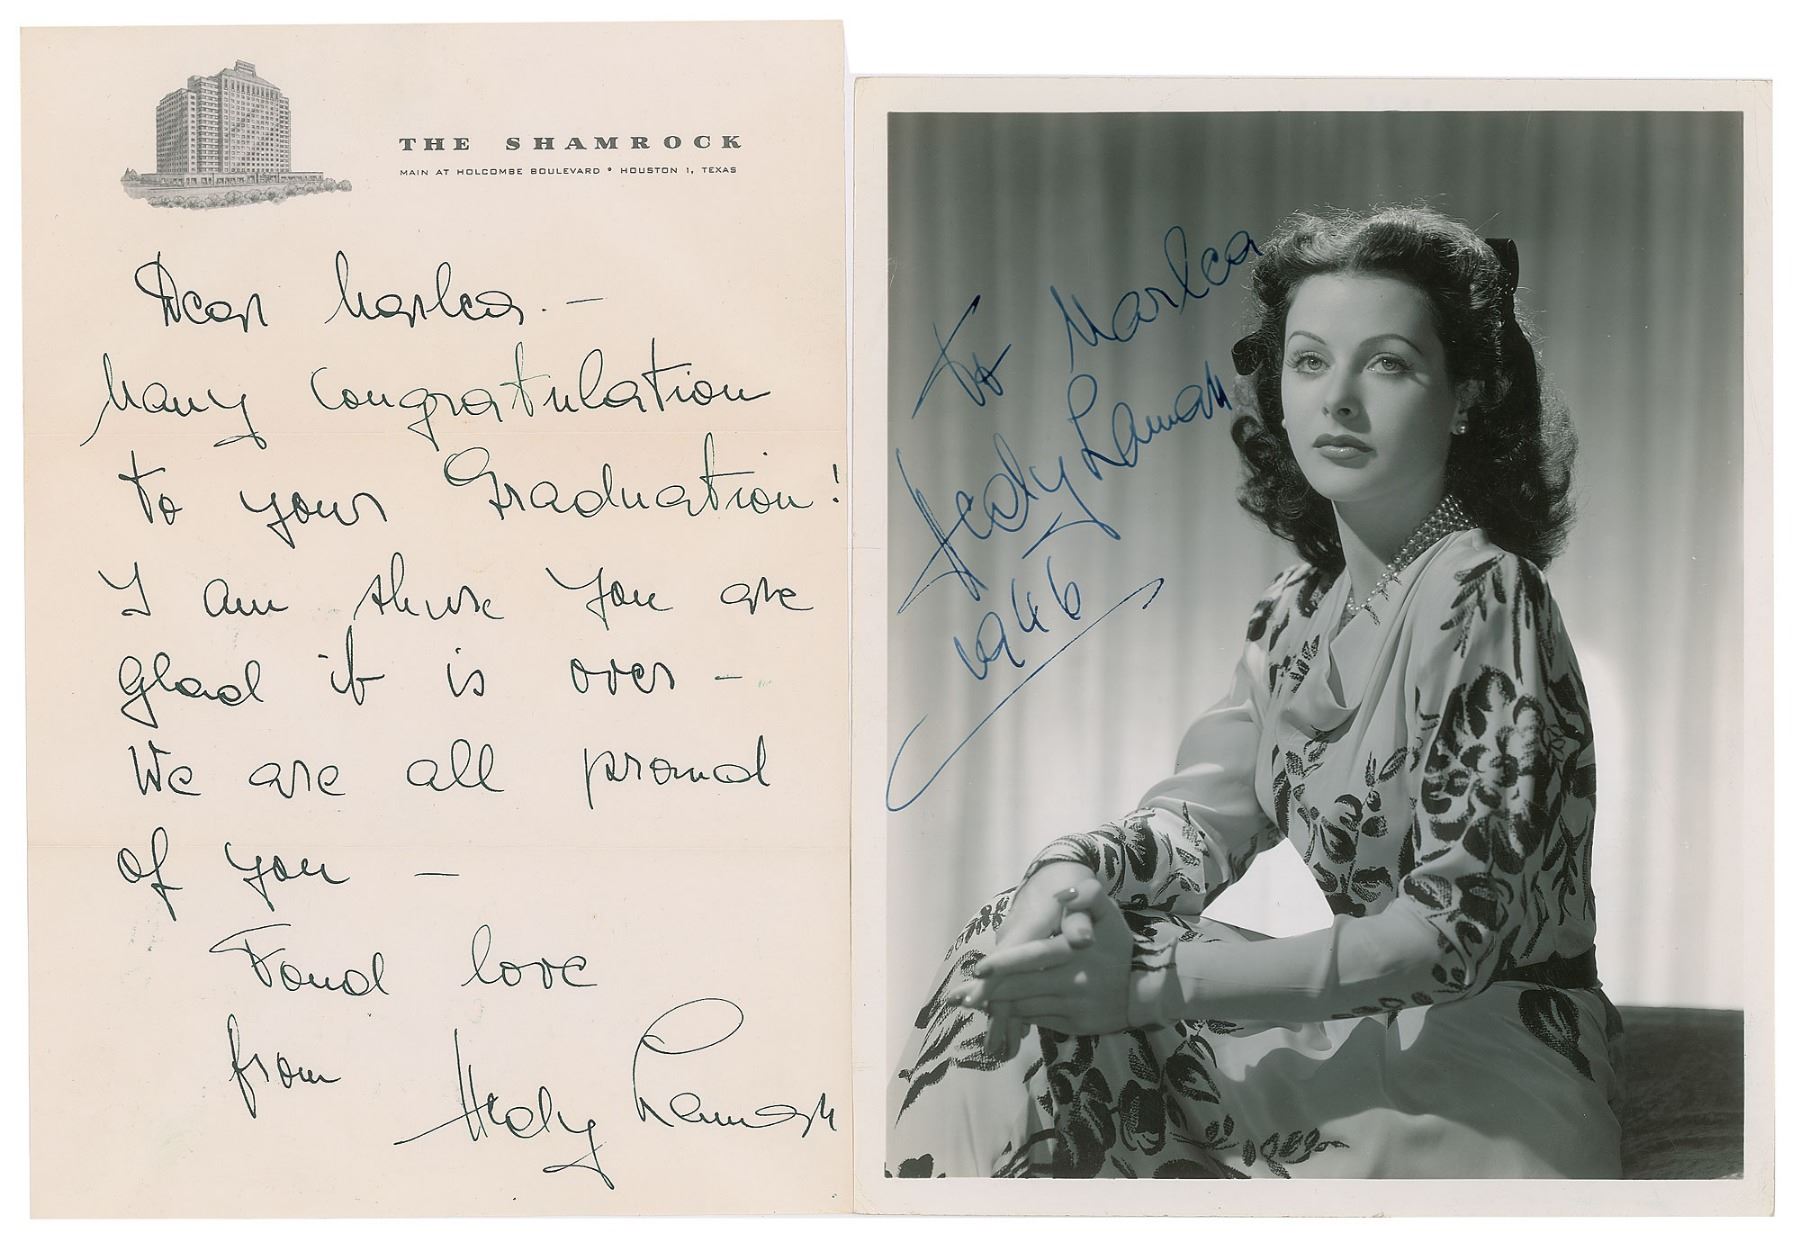 THE SHAMROCK
MAIN AT HOLCOMBE BOULEVARD • HOUSTON 1, TEXAS
Dear Marlca. —
Many Congratulation
to your Graduation!
I am shure you are
glad it is over —
We are all proud
of you —
Fond love
from Hedy Lamarr
To Marlca
Hedy Lamarr
1946